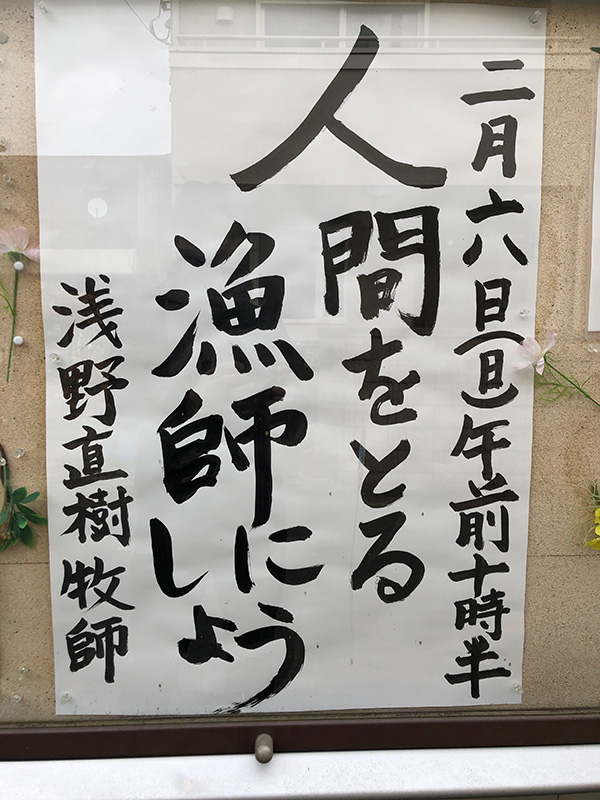 二月六日(日)午前十時半
人間をとる
漁師にし
ょう
浅野直樹牧師